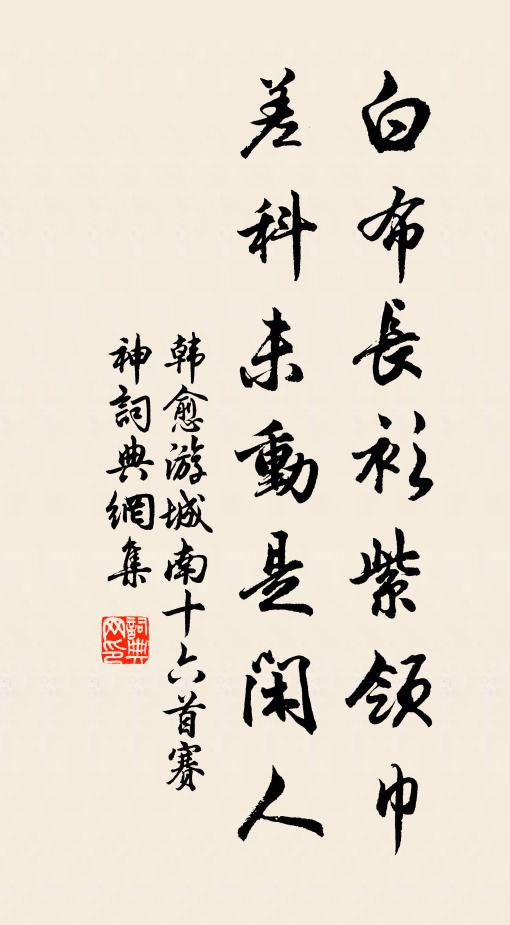 白布長衫紫領巾
差科未動是閑人
韓愈游城南十六首賽
神詞典網集
詞典
网印